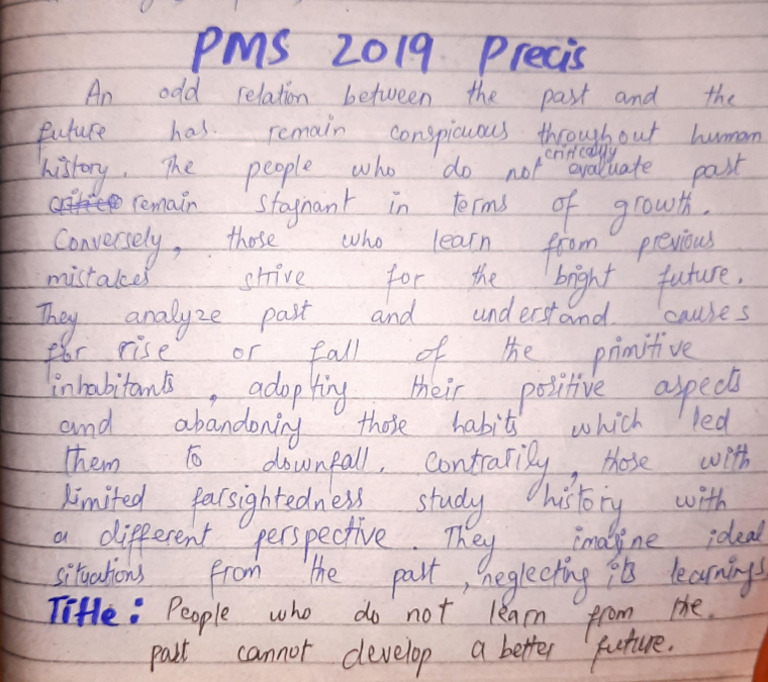 PMS 2019 Precis
An odd relation between the past and the
future has remain conspicuous throughout human
critically
history. The people who do not evaluate past
remain stagnant in terms of growth.
Conversely, those who learn from previous
mistakes strive for the bright future.
They analyze past and understand causes
for rise or fall of the primitive
inhabitants, adopting their positive aspects
and abandoning those habits which led
them to downfall. Contrarily, those with
limited farsightedness study history with
a different perspective. They imagine ideal
situations from the past, neglecting its learnings
Title: People who do not learn from the.
past cannot develop a better future.